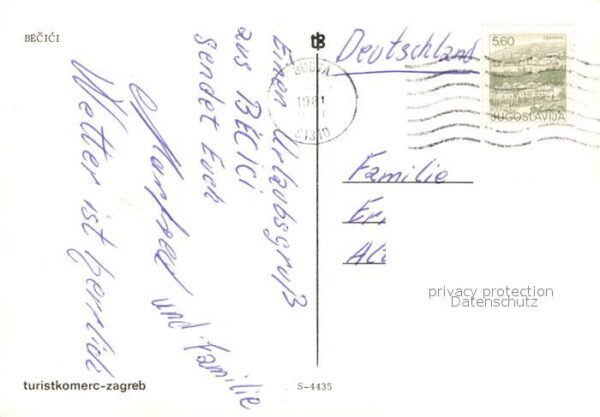 BEČIĆI
Einen Urlaubsgruß
aus BEČICI
sendet Euch
Manfred und Familie
Wetter ist herrlich
turistkomerc-zagreb
S-4435
Deutschland
BUDVA
1981
81310
5,60
JUGOSLAVIJA
Familie
privacy protection
Datenschutz